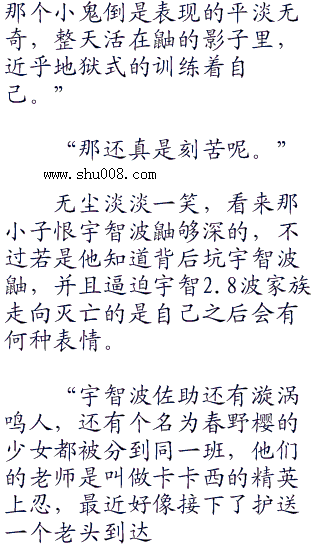 那个小鬼倒是表现的平淡无
奇，整天活在鼬的影子里，
近乎地狱式的训练着自
己。”
“那还真是刻苦呢。”
www.shu008.com
无尘淡淡一笑，看来那
小子恨宇智波鼬够深的，不
过若是他知道背后坑宇智波
鼬，并且逼迫宇智2.8波家族
走向灭亡的是自己之后会有
何种表情。
“宇智波佐助还有漩涡
鸣人，还有个名为春野樱的
少女都被分到同一班，他们
的老师是叫做卡卡西的精英
上忍，最近好像接下了护送
一个老头到达